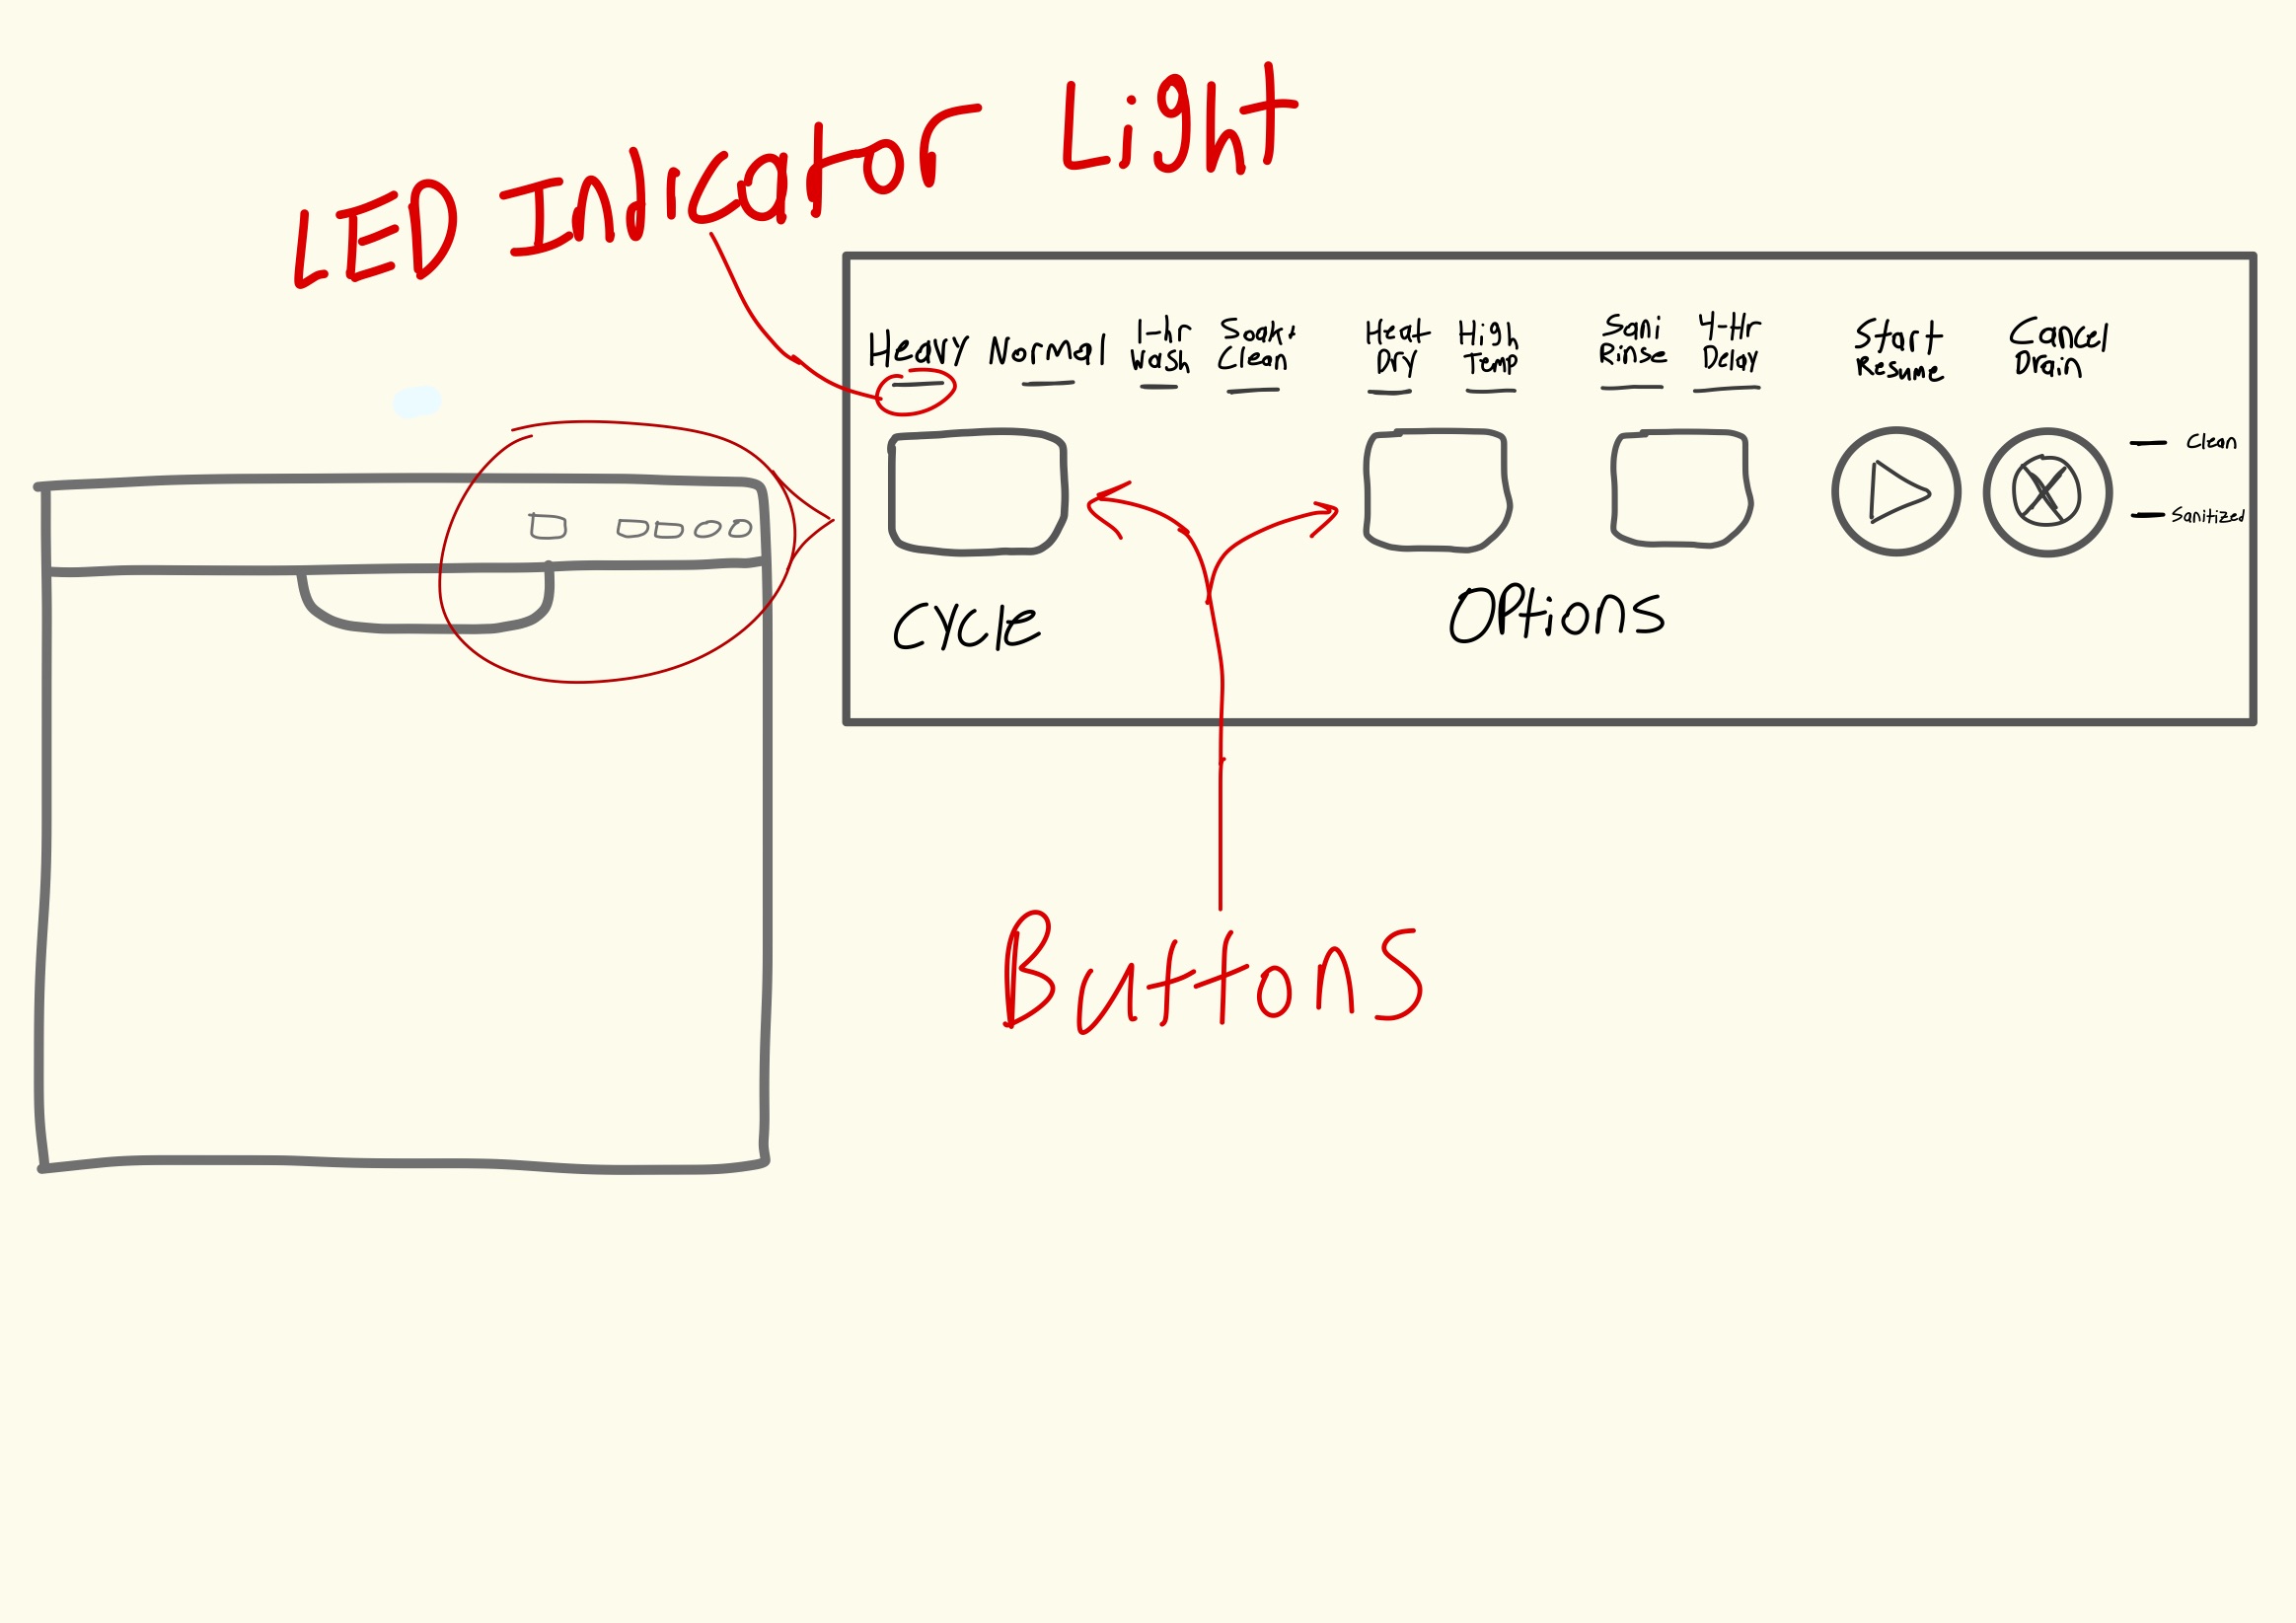 LED Indicator Light
Heavy
Normal
1-hr
Wash
Soak
Clean
Heat
Dry
High
Temp
Sani
Rinse
4-Hr
Delay
Start
Resume
Cancel
Drain
Clean
Sanitized
Cycle
Options
Buttons